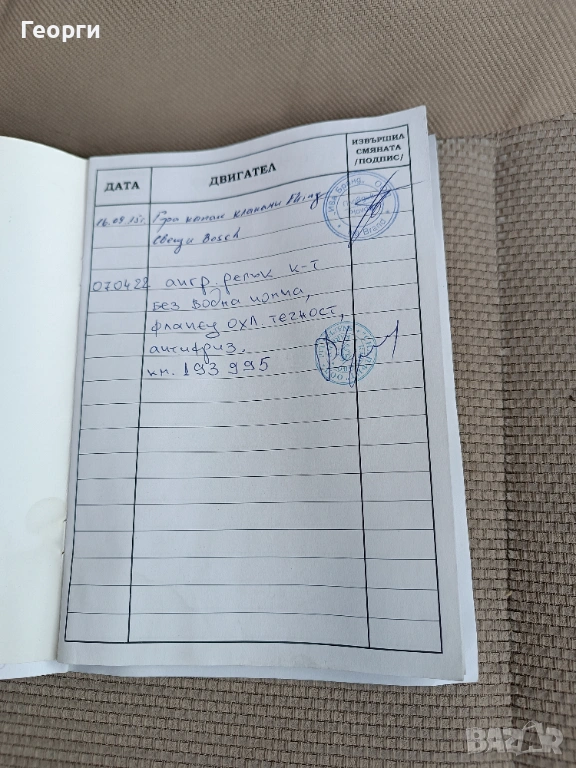 Георги
ДАТА
ДВИГАТЕЛ
ИЗВЪРШИЛ
СМЯНАТА
/ПОДПИС/
16.09.15г. капак клапани
Свещи Bosch
070422 ангр. ремък к-т
без водна помпа,
фланец охл. течност,
антифриз.
км. 193 995
BAZAR